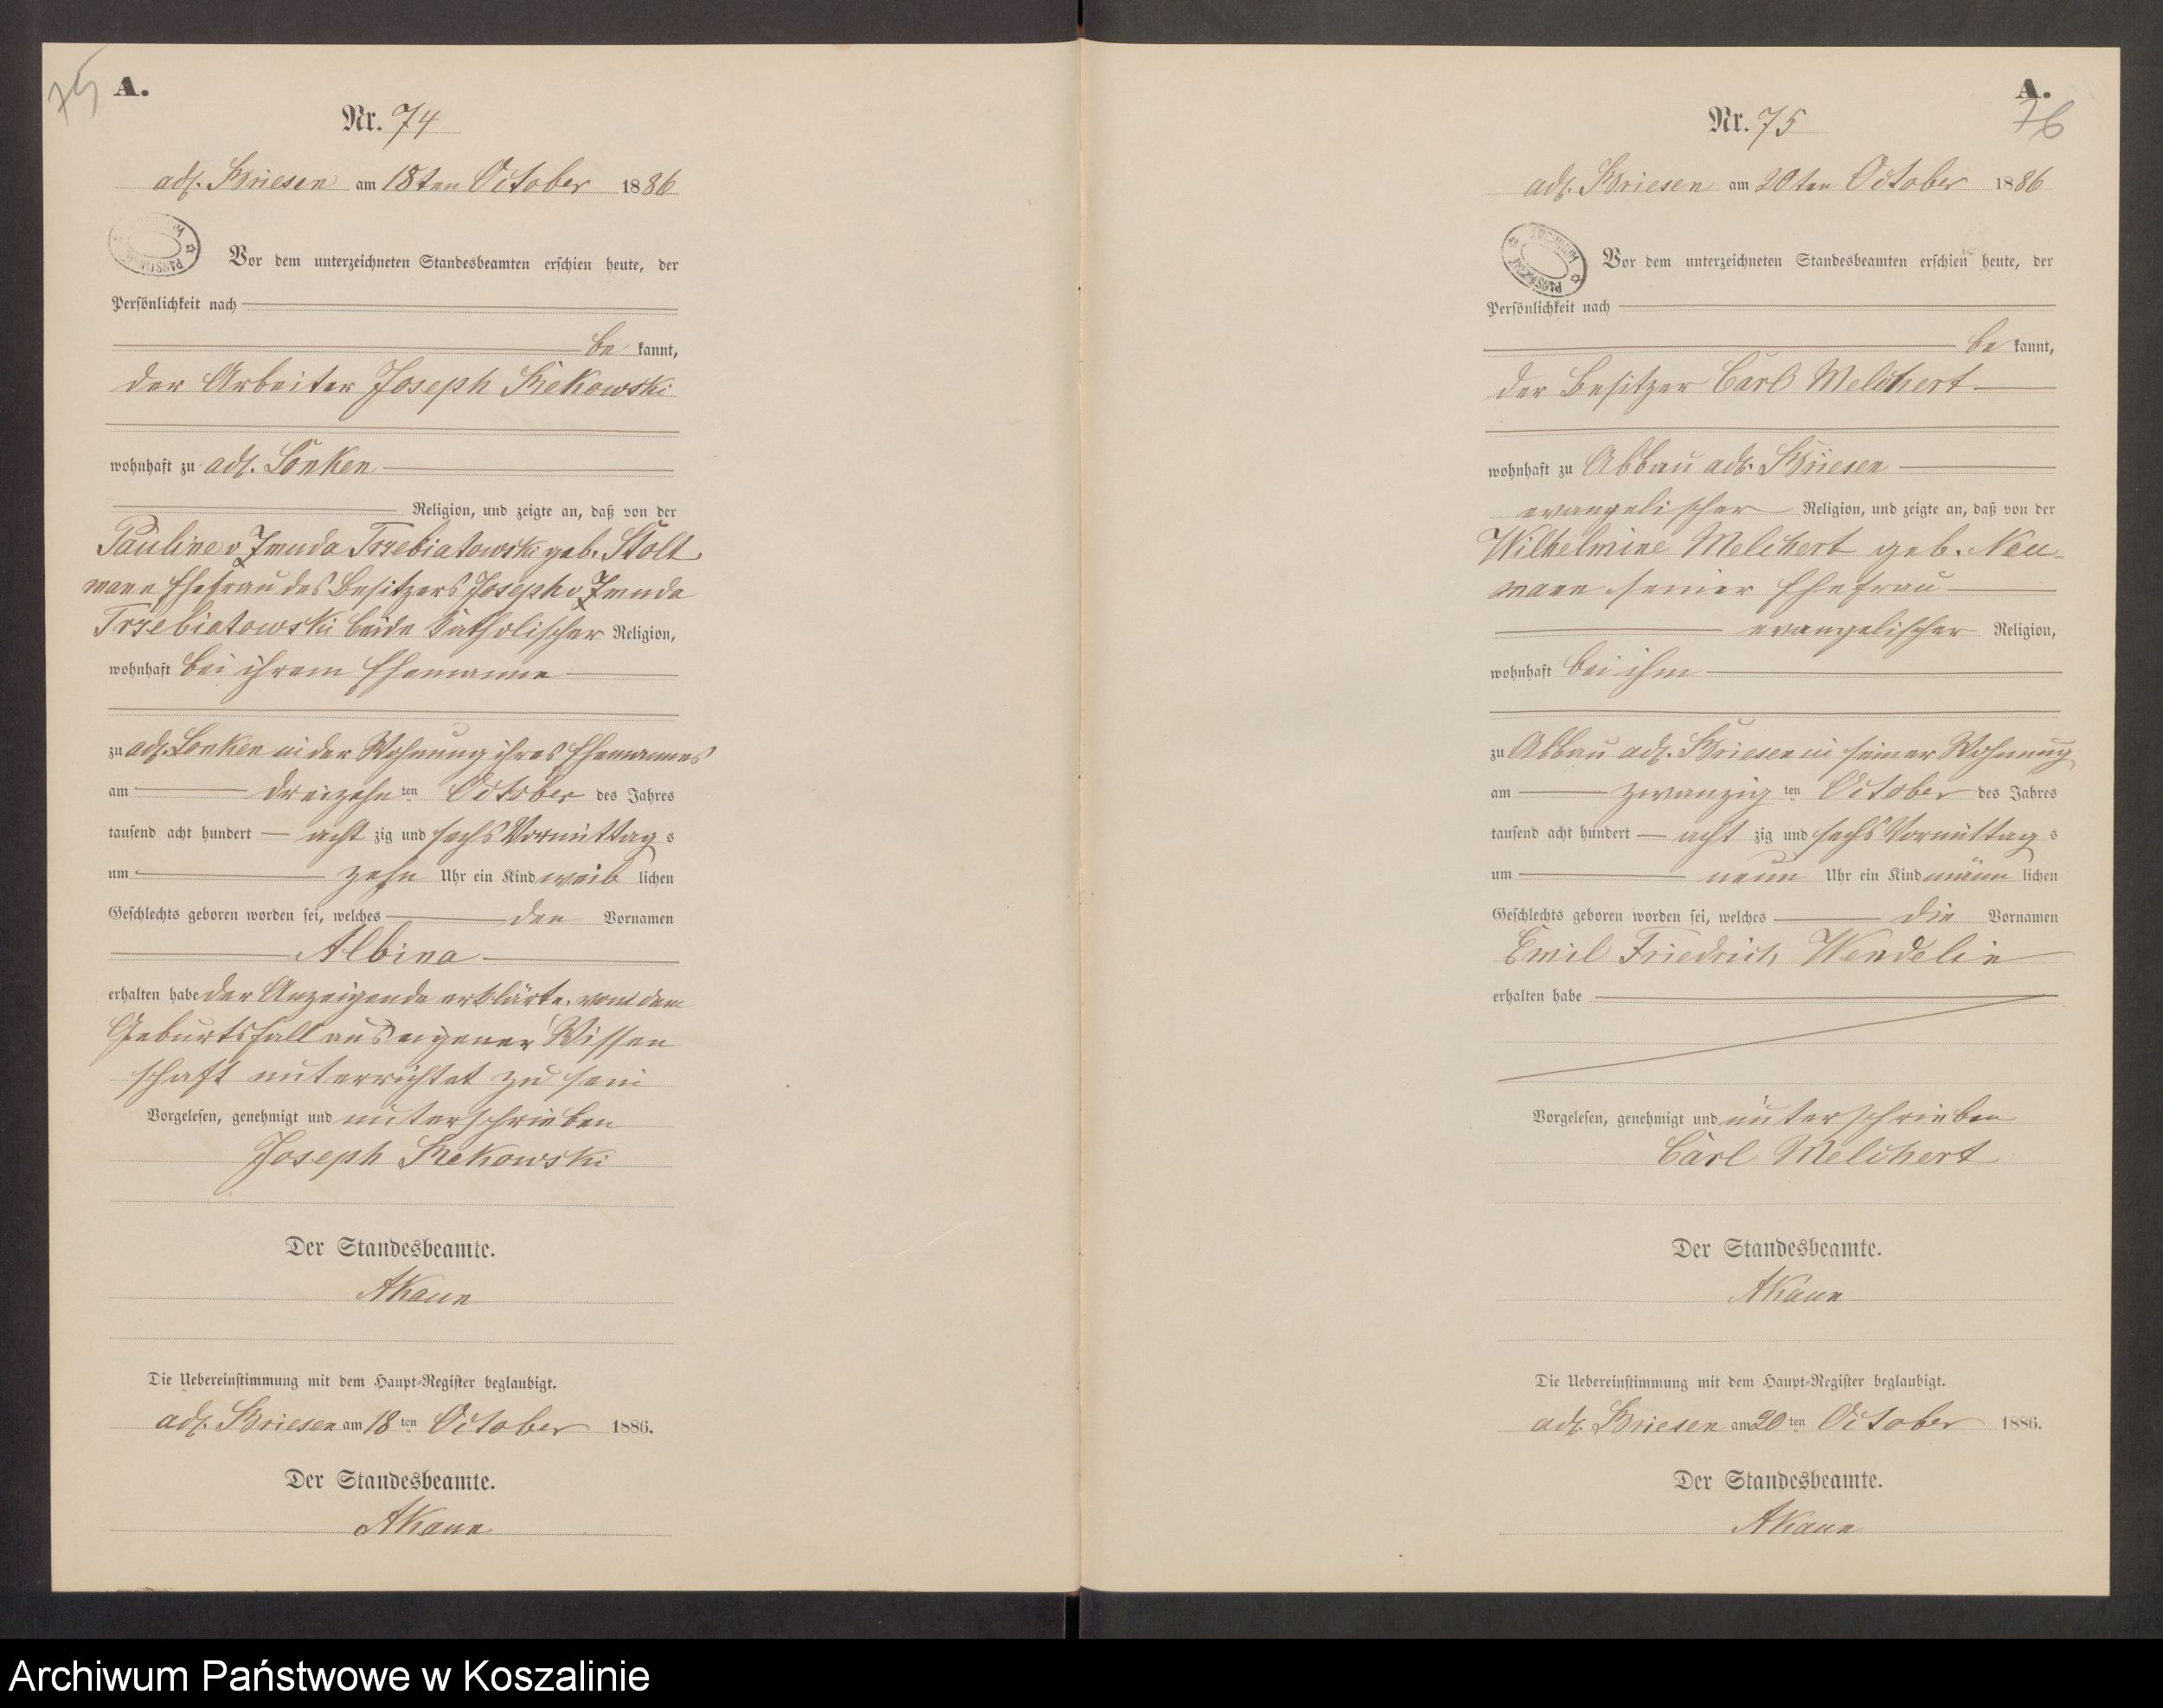 75
A.
Nr. 74
adl. Briesen am 18ten October 1886
Vor dem unterzeichneten Standesbeamten erschien heute, der
Persönlichkeit nach
be kannt,
der Arbeiter Joseph Rekowski
wohnhaft zu adl. Lonken
Religion, und zeigte an, daß von der
Pauline v Zmuda Trzebiatowski geb. Stolt
mann Ehefrau des Besitzers Joseph v Zmuda
Trzebiatowski beide katholischer Religion,
wohnhaft bei ihrem Ehemanne
zu adl. Lonken in der Wohnung ihres Ehemannes
am dreizehn ten October des Jahres
tausend acht hundert acht zig und sechs Vormittag s
um zehn Uhr ein Kind weib lichen
Geschlechts geboren worden sei, welches den Vornamen
Albina
erhalten habe der Anzeigende erklärte, von dem
Geburtsfall aus eigener Wissen
schaft unterrichtet zu sein
Vorgelesen, genehmigt und unterschrieben
Joseph Rekowski
Der Standesbeamte.
Die Uebereinstimmung mit dem Haupt-Register beglaubigt.
adl. Briesen am 18 ten October 1886.
Der Standesbeamte.
A.
76
Nr. 75
adl. Briesen am 20ten October 1886
ARCHIWUM
Vor dem unterzeichneten Standesbeamten erschien heute, der
Persönlichkeit nach
be kannt,
der Besitzer Carl Melchert
wohnhaft zu Abbau adl. Briesen
evangelischer Religion, und zeigte an, daß von der
Wilhelmine Melchert geb. Neu-
mann seiner Ehefrau
evangelischer Religion,
wohnhaft bei ihm
zu Abbau adl. Briesen in seiner Wohnung
am zwanzig ten October des Jahres
tausend acht hundert acht zig und sechs Vormittag s
um neun Uhr ein Kind männ lichen
Geschlechts geboren worden sei, welches die Vornamen
Emil Friedrich Wendelin
erhalten habe
Vorgelesen, genehmigt und unterschrieben
Carl Melchert
Der Standesbeamte.
Die Uebereinstimmung mit dem Haupt-Register beglaubigt.
adl. Briesen am 20 ten October 1886.
Der Standesbeamte.
Archiwum Państwowe w Koszalinie